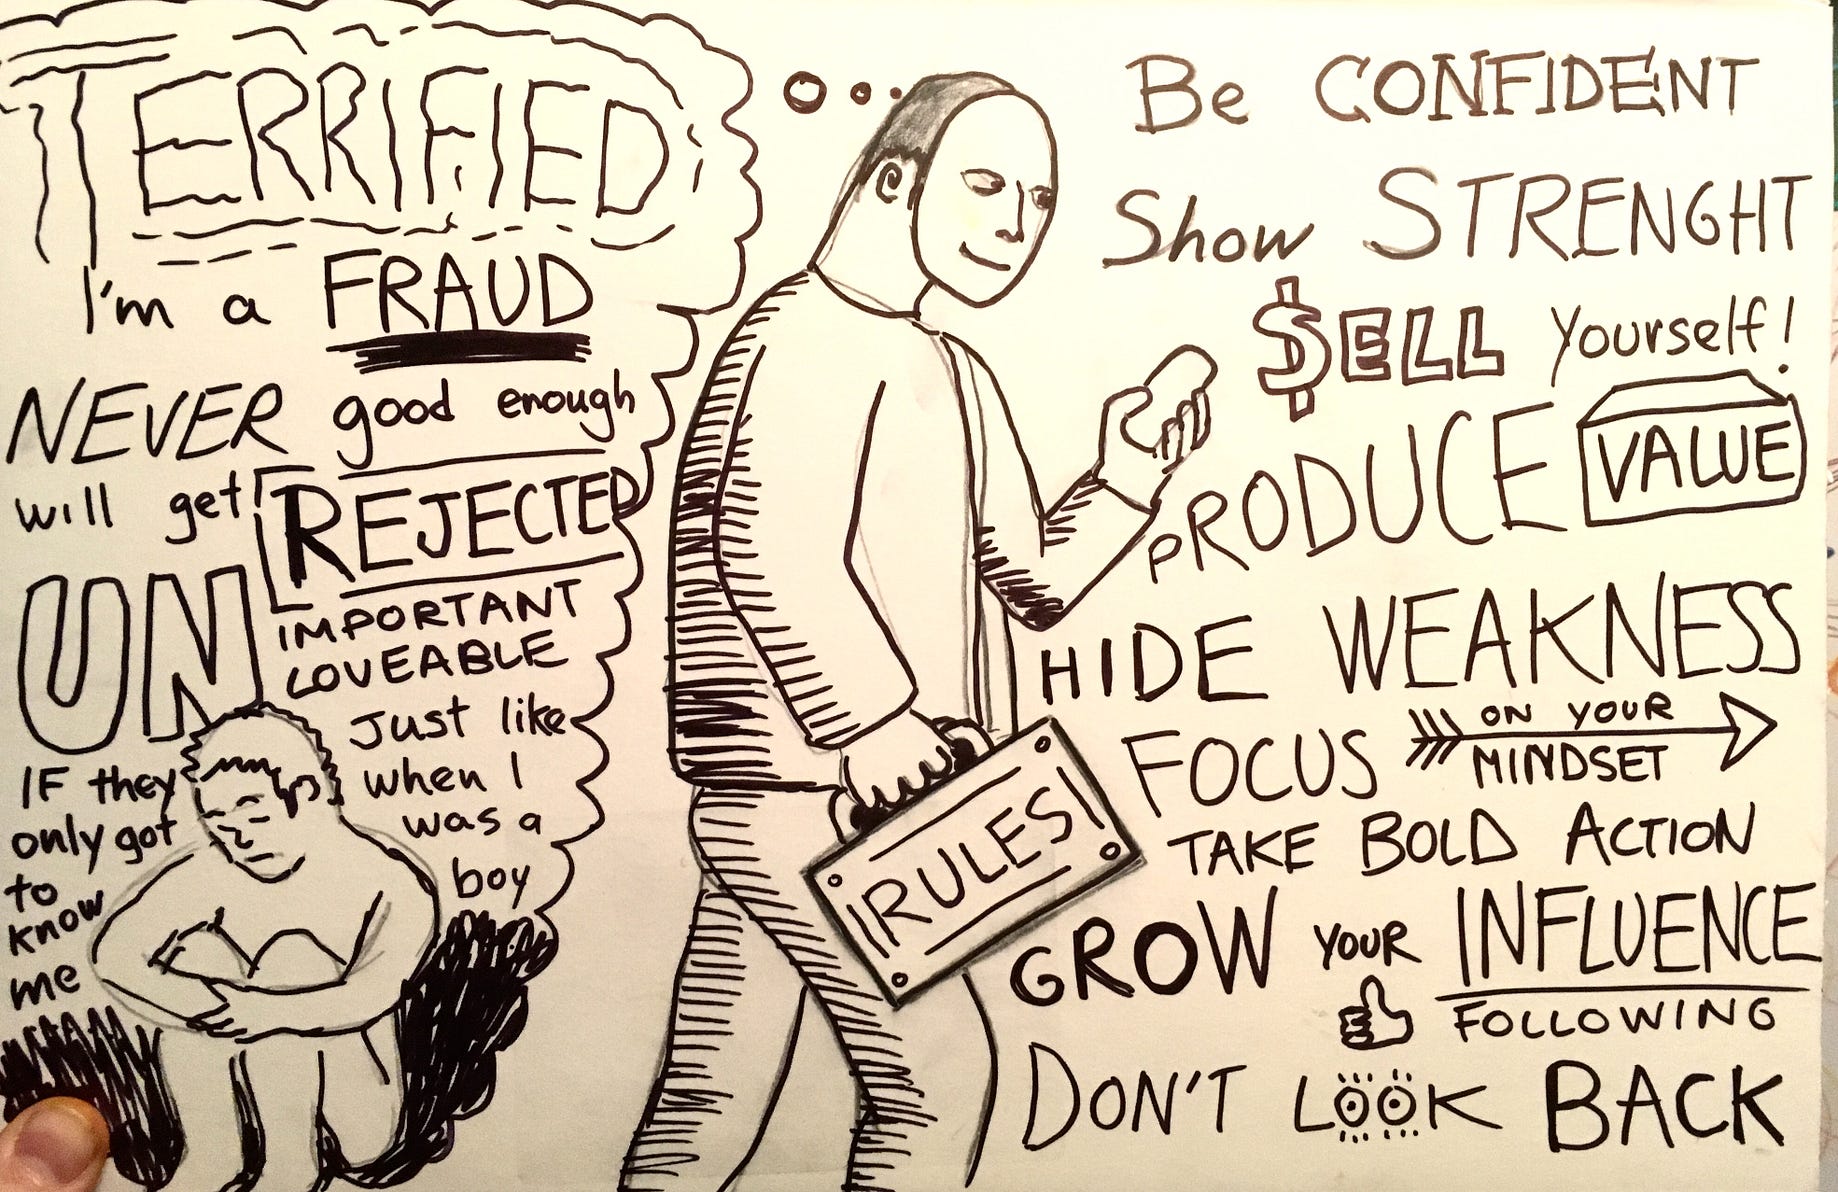 TERRIFIED
I'm a FRAUD
NEVER good enough
will get REJECTED
UN
IMPORTANT
LOVEABLE
Just like
when I
was a
boy
IF they
only got
to
know
me
RULES!
Be CONFIDENT
Show STRENGHT
$ELL Yourself!
PRODUCE VALUE
HIDE WEAKNESS
FOCUS ON YOUR
MINDSET
TAKE BOLD ACTION
GROW YOUR INFLUENCE
FOLLOWING
DON'T LOOK BACK